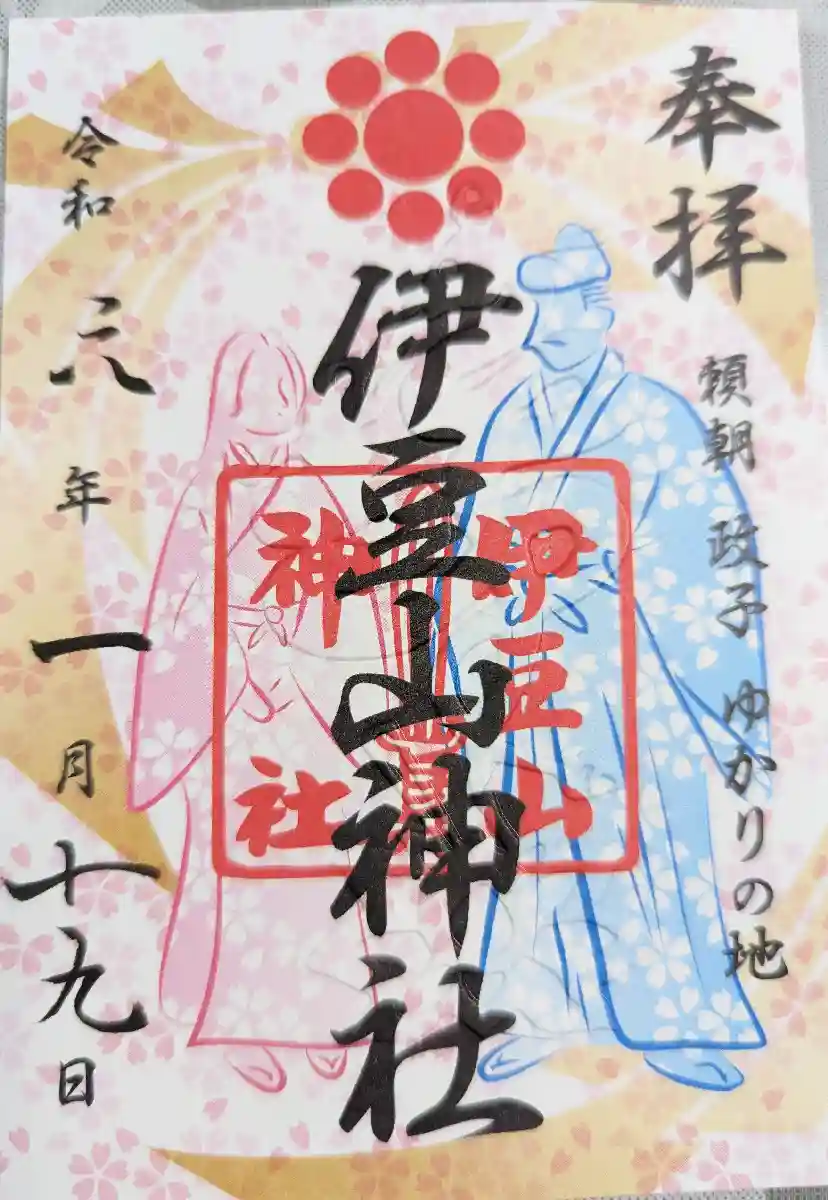 奉拝
頼朝 政子 ゆかりの地
伊豆山神社
伊豆山
神社
令和六年一月十九日